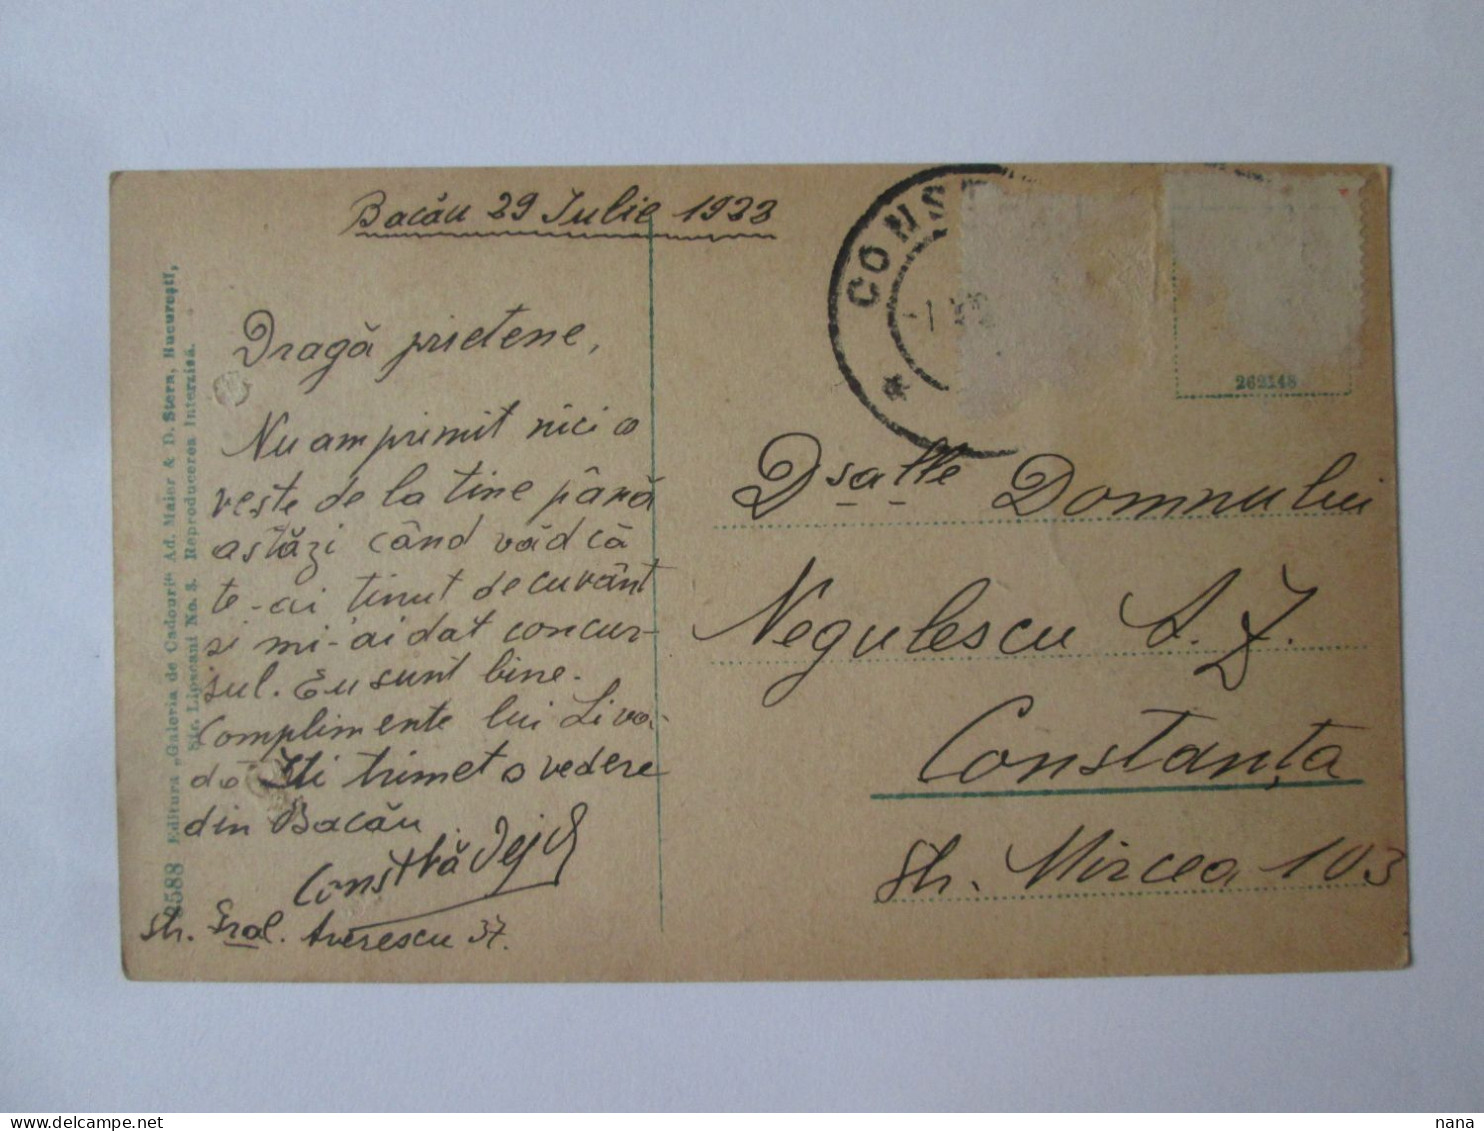 Bacău 29 Iulie 1933
Dragă prietene,
Nu am primit nici o
veste de la tine până
astăzi când văd că
te-ai ținut de cuvânt
si mi-ai dat concur-
sul. Eu sunt bine.
Complimente lui Liva-
dă Iti trimet o vedere
din Bacău
Str. Gral. Averescu 37.
Editura „Galeria de Cadouri" Ad. Maier & D. Stern, București,
Str. Lipscani No. 3. Reproducerea Interzisă.
2588
CONST
262148
Dsalle Domnului
Negulescu A. Z.
Constanța
Str. Mircea 103
delcampe.net
nana